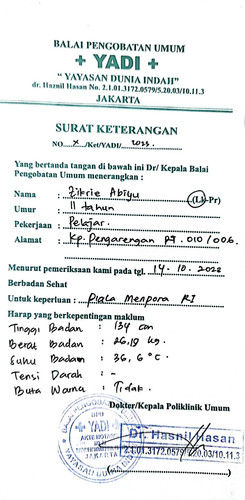 BALAI PENGOBATAN UMUM
+ YADI +
" YAYASAN DUNIA INDAH"
dr. Haznil Hasan No. 2.1.01.3172.0579/5.20.03/10.11.3
JAKARTA
SURAT KETERANGAN
NO....X.../Ket/YADI/....2023....
Yang bertanda tangan di bawah ini Dr/ Kepala Balai
Pengobatan Umum menerangkan :
Nama : Zikrie Abiyu (Lk-Pr)
Umur : 11 tahun
Pekerjaan : Pelajar.
Alamat : Kp. Pengarengan RT. 010/006.
Menurut pemeriksaan kami pada tgl. 14.10.2023
Berbadan Sehat
Untuk keperluan : Piala Menpora RI
Harap yang berkepentingan maklum
Tinggi Badan : 134 cm
Berat Badan : 26,19 kg.
Suhu Badan : 36,6 °C.
Tensi Darah : -
Buta Warna : Tidak.
Dokter/Kepala Poliklinik Umum
BALAI PENGOBATAN
BPU
YADI
JAKARTA
YAYASAN DUNIA INDAH
Dr. Hasnil Hasan
2.1.01.3172.0579/5.20.03/10.11.3